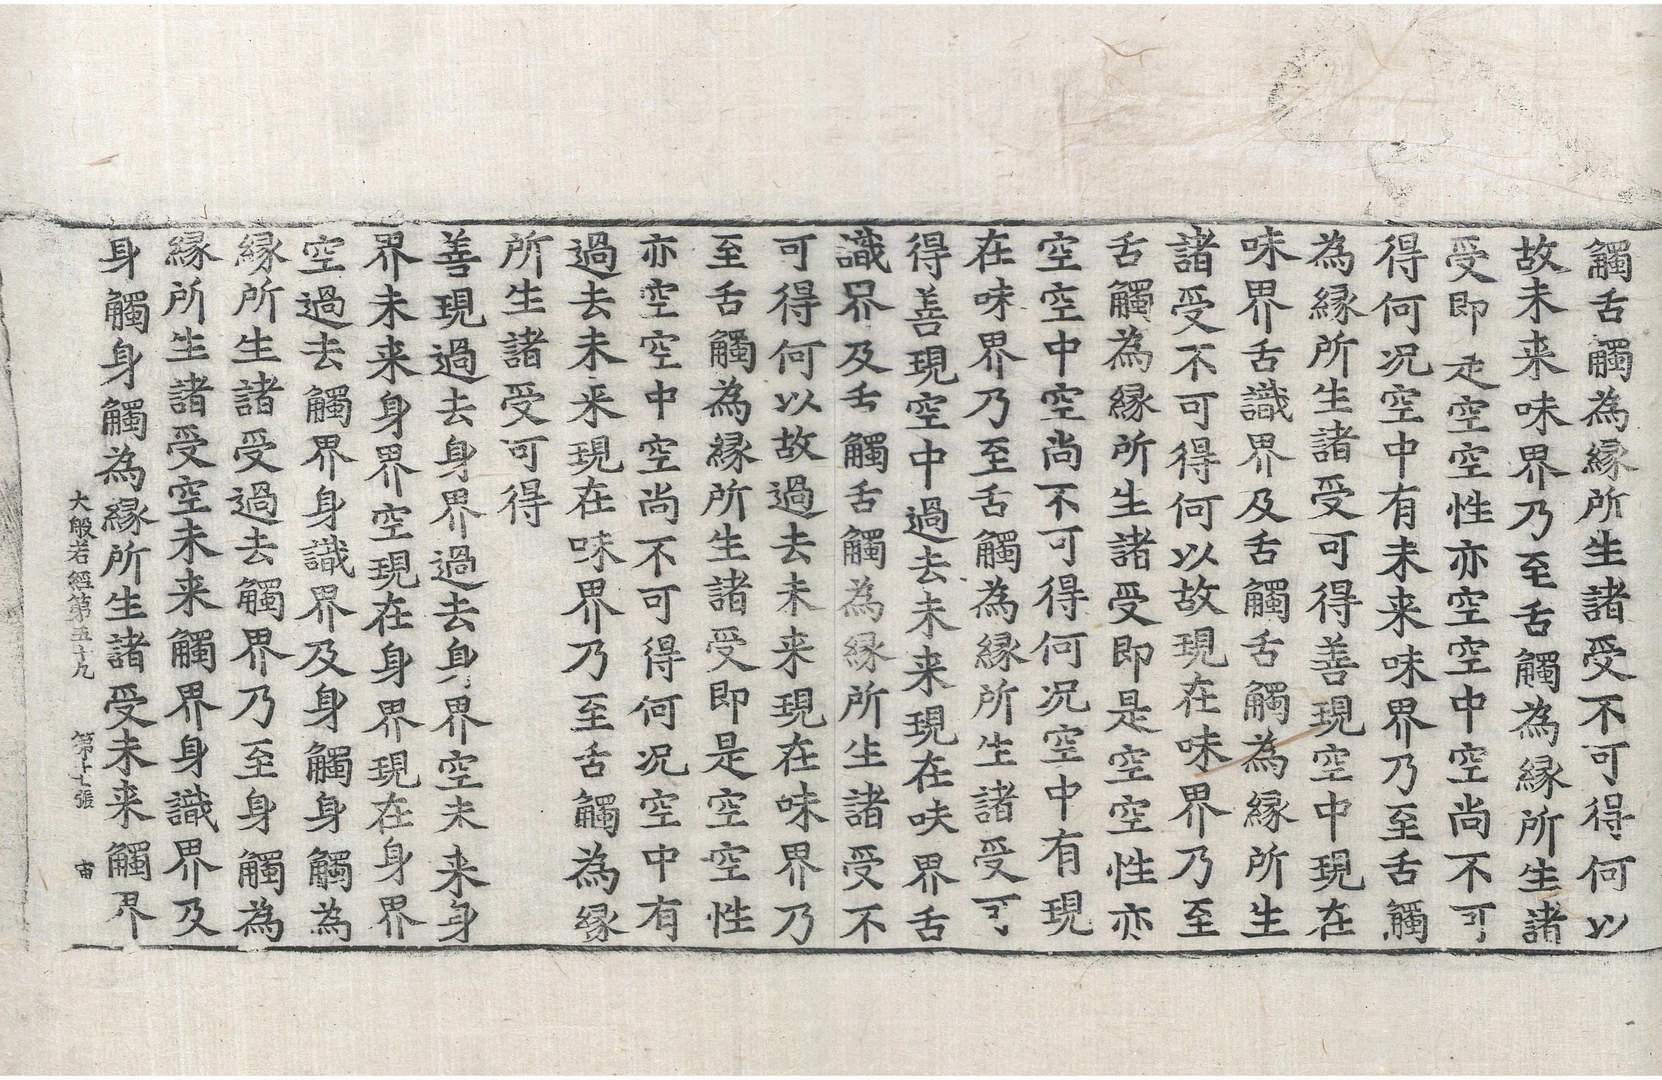 觸舌觸為縁所生諸受不可得何以
故未来味界乃至舌觸為縁所生諸
受即是空空性亦空空中空尚不可
得何况空中有未来味界乃至舌觸
為縁所生諸受可得善現空中現在
味界舌識界及舌觸舌觸為縁所生
諸受不可得何以故現在味界乃至
舌觸為縁所生諸受即是空空性亦
空空中空尚不可得何况空中有現
在味界乃至舌觸為縁所生諸受可
得善現空中過去未来現在味界舌
識界及舌觸舌觸為縁所生諸受不
可得何以故過去未来現在味界乃
至舌觸為縁所生諸受即是空空性
亦空空中空尚不可得何况空中有
過去未来現在味界乃至舌觸為縁
所生諸受可得
善現過去身界過去身界空未来身
界未来身界空現在身界現在身界
空過去觸界身識界及身觸身觸為
縁所生諸受過去觸界乃至身觸為
縁所生諸受空未来觸界身識界及
身觸身觸為縁所生諸受未来觸界
大般若經第五十九 第十七張 宙